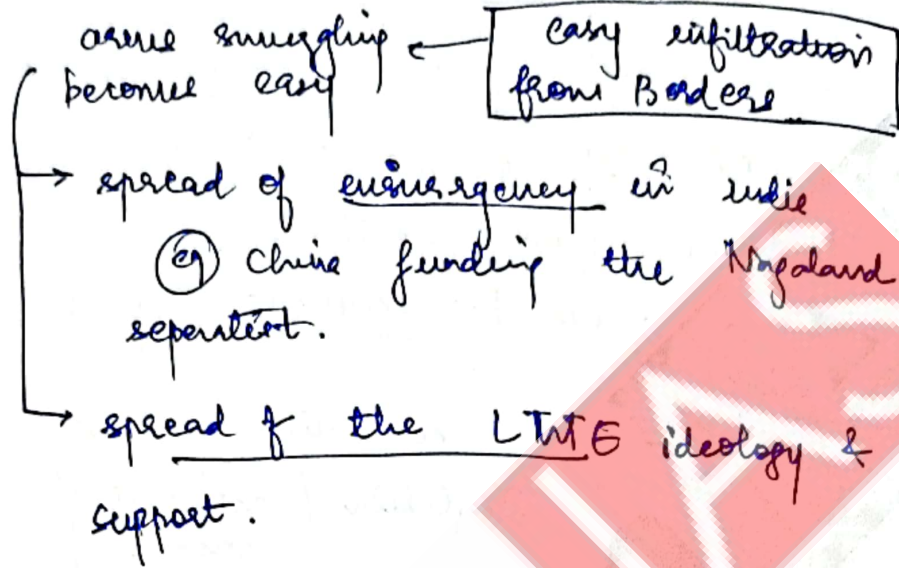 arms smuggling ← easy infiltration
becomes easy from Borders
→ spread of insurgency in india
eg China funding the Nagaland
seperatist.
→ spread of the LTTE ideology &
support.
IAS